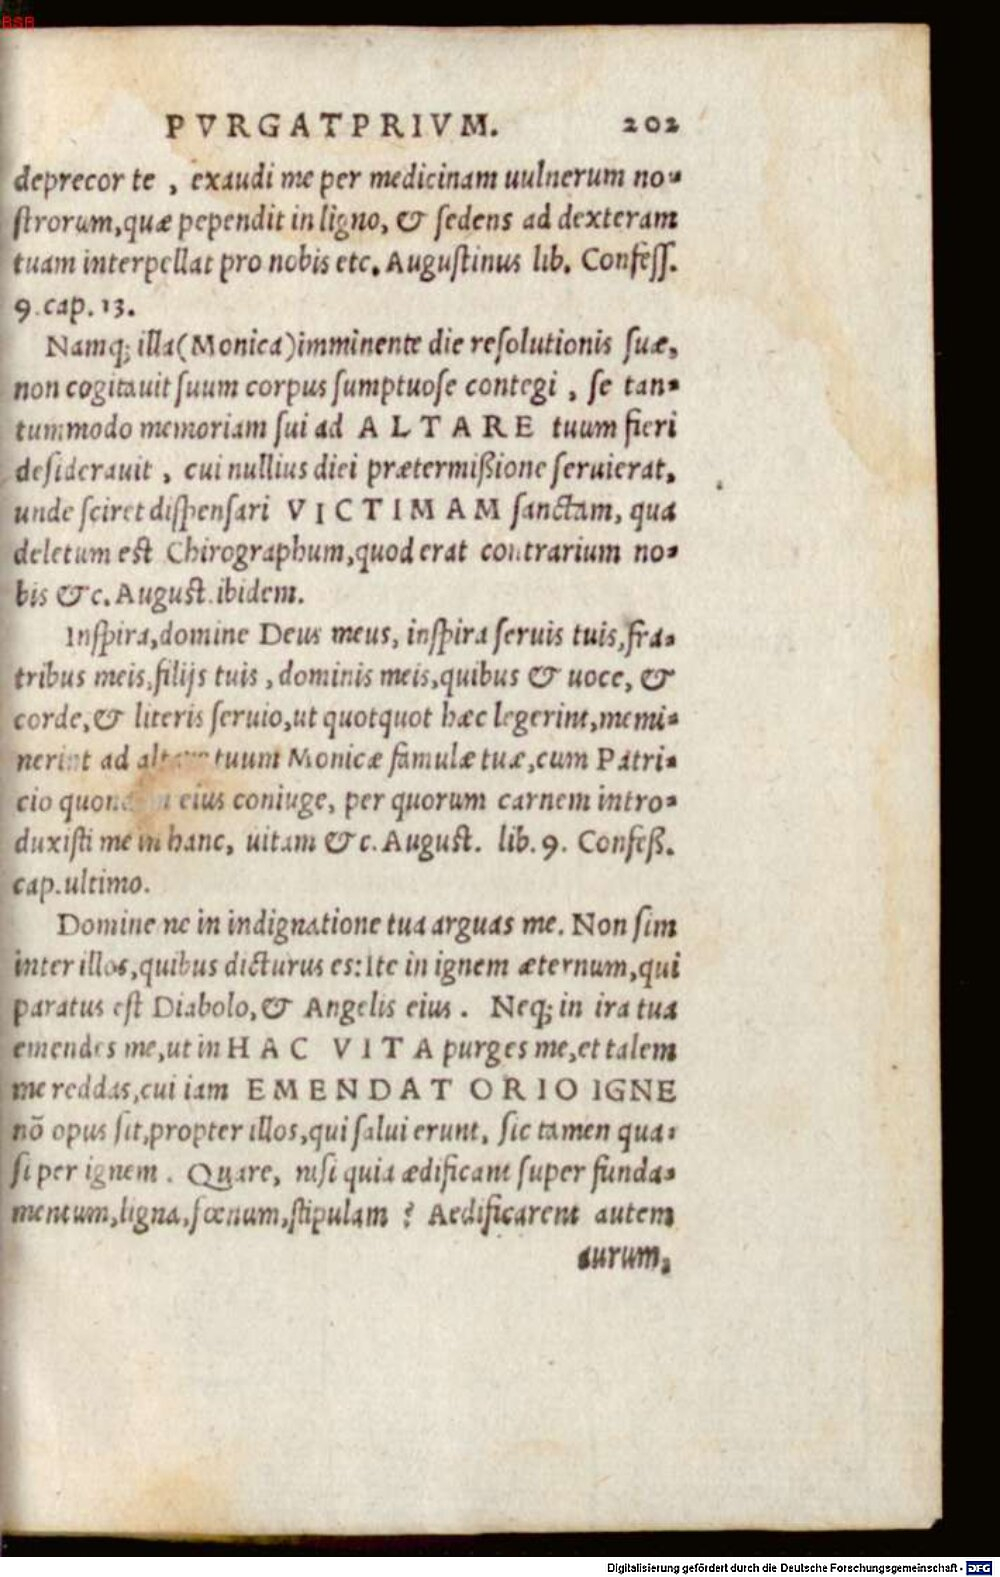 BSB
PVRGATPRIVM. 202
deprecor te , exaudi me per medicinam uulnerum no-
ſtrorum,quæ pependit in ligno, & ſedens ad dexteram
tuam interpellat pro nobis etc. Auguſtinus lib. Confeſſ.
9. cap. 13.
Namq; illa(Monica)imminente die reſolutionis ſuæ,
non cogitauit ſuum corpus ſumptuoſe contegi , ſe tan-
tummodo memoriam ſui ad ALTARE tuum fieri
deſiderauit , cui nullius diei prætermißione ſeruierat,
unde ſciret diſpenſari VICTIMAM ſanctam, qua
deletum eſt Chirographum,quod erat contrarium no-
bis &c. Auguſt. ibidem.
Inſpira,domine Deus meus, inſpira ſeruis tuis,fra-
tribus meis,filijs tuis , dominis meis,quibus & uoce, &
corde,& literis ſeruio,ut quotquot hæc legerint,memi-
nerint ad altare tuum Monicæ famulæ tuæ,cum Patri-
cio quondam eius coniuge, per quorum carnem intro-
duxiſti me in hanc, uitam &c. Auguſt. lib. 9. Confeß.
cap. ultimo.
Domine ne in indignatione tua arguas me. Non ſim
inter illos,quibus dicturus es: Ite in ignem æternum,qui
paratus eſt Diabolo,& Angelis eius . Neq; in ira tua
emendes me,ut in HAC VITA purges me,et talem
me reddas,cui iam EMENDATORIO IGNE
nõ opus ſit,propter illos,qui ſalui erunt, ſic tamen qua-
ſi per ignem . Quare, niſi quia ædificant ſuper funda-
mentum,ligna,fœnum,ſtipulam ? Aedificarent autem
aurum,
Digitalisierung gefördert durch die Deutsche Forschungsgemeinschaft - DFG